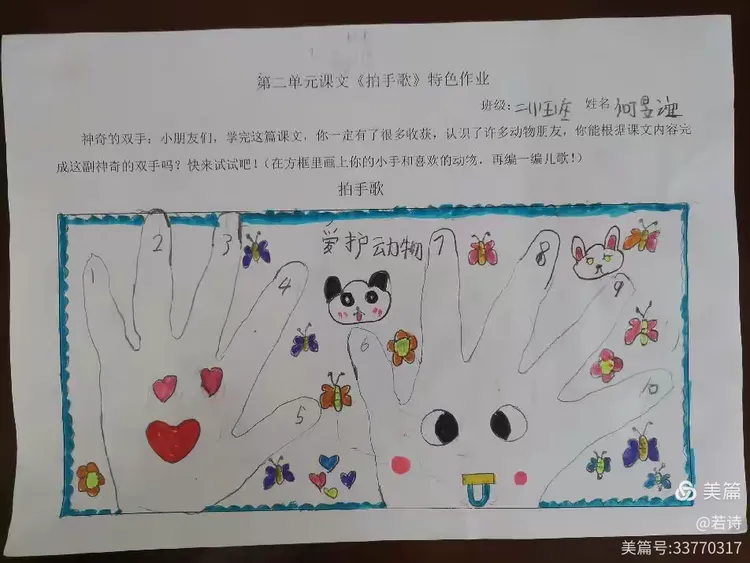 第二单元课文《拍手歌》特色作业
班级: 姓名 何昱
神奇的双手：小朋友们，学完这篇课文，你一定有了很多收获，认识了许多动物朋友，你能根据课文内容完
成这副神奇的双手吗？快来试试吧！（在方框里画上你的小手和喜欢的动物，再编一编儿歌！）
拍手歌
爱护动物
1 2 3 4 5
6 7 8 9 10
美篇
@若诗
美篇号:33770317